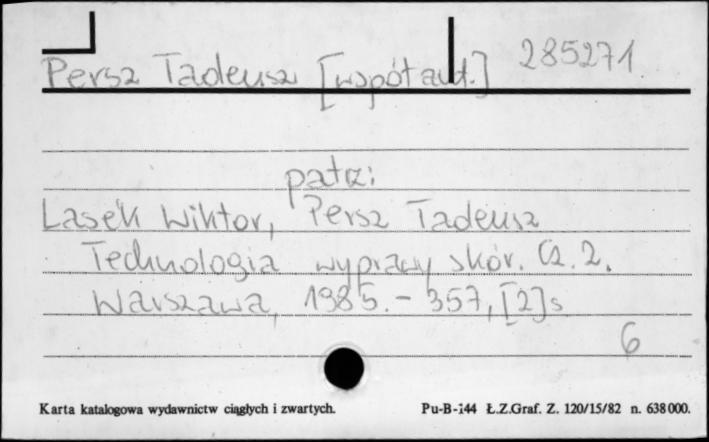 Persz Tadeusz [współaut.] 285271
patrz:
Lasek Wiktor, Persz Tadeusz
Technologia wyprawy skór. Cz. 2.
Warszawa, 1985. - 357, [2] s
6
Karta katalogowa wydawnictw ciągłych i zwartych. Pu-B-144 Ł.Z.Graf. Z. 120/15/82 n. 638000.